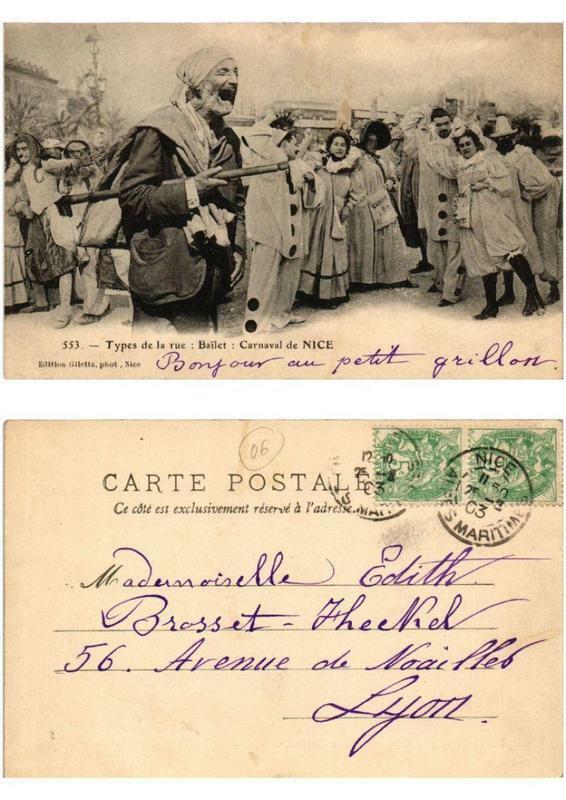 553. — Types de la rue : Baïlet : Carnaval de NICE
Edition Giletta, phot., Nice
Bonjour au petit grillon.
06
CARTE POSTALE
Ce côté est exclusivement réservé à l'adresse.
NICE
11 30
03
MARITIMES
Mademoiselle Edith
Brosset - Heckel
56. Avenue de Noailles
Lyon.